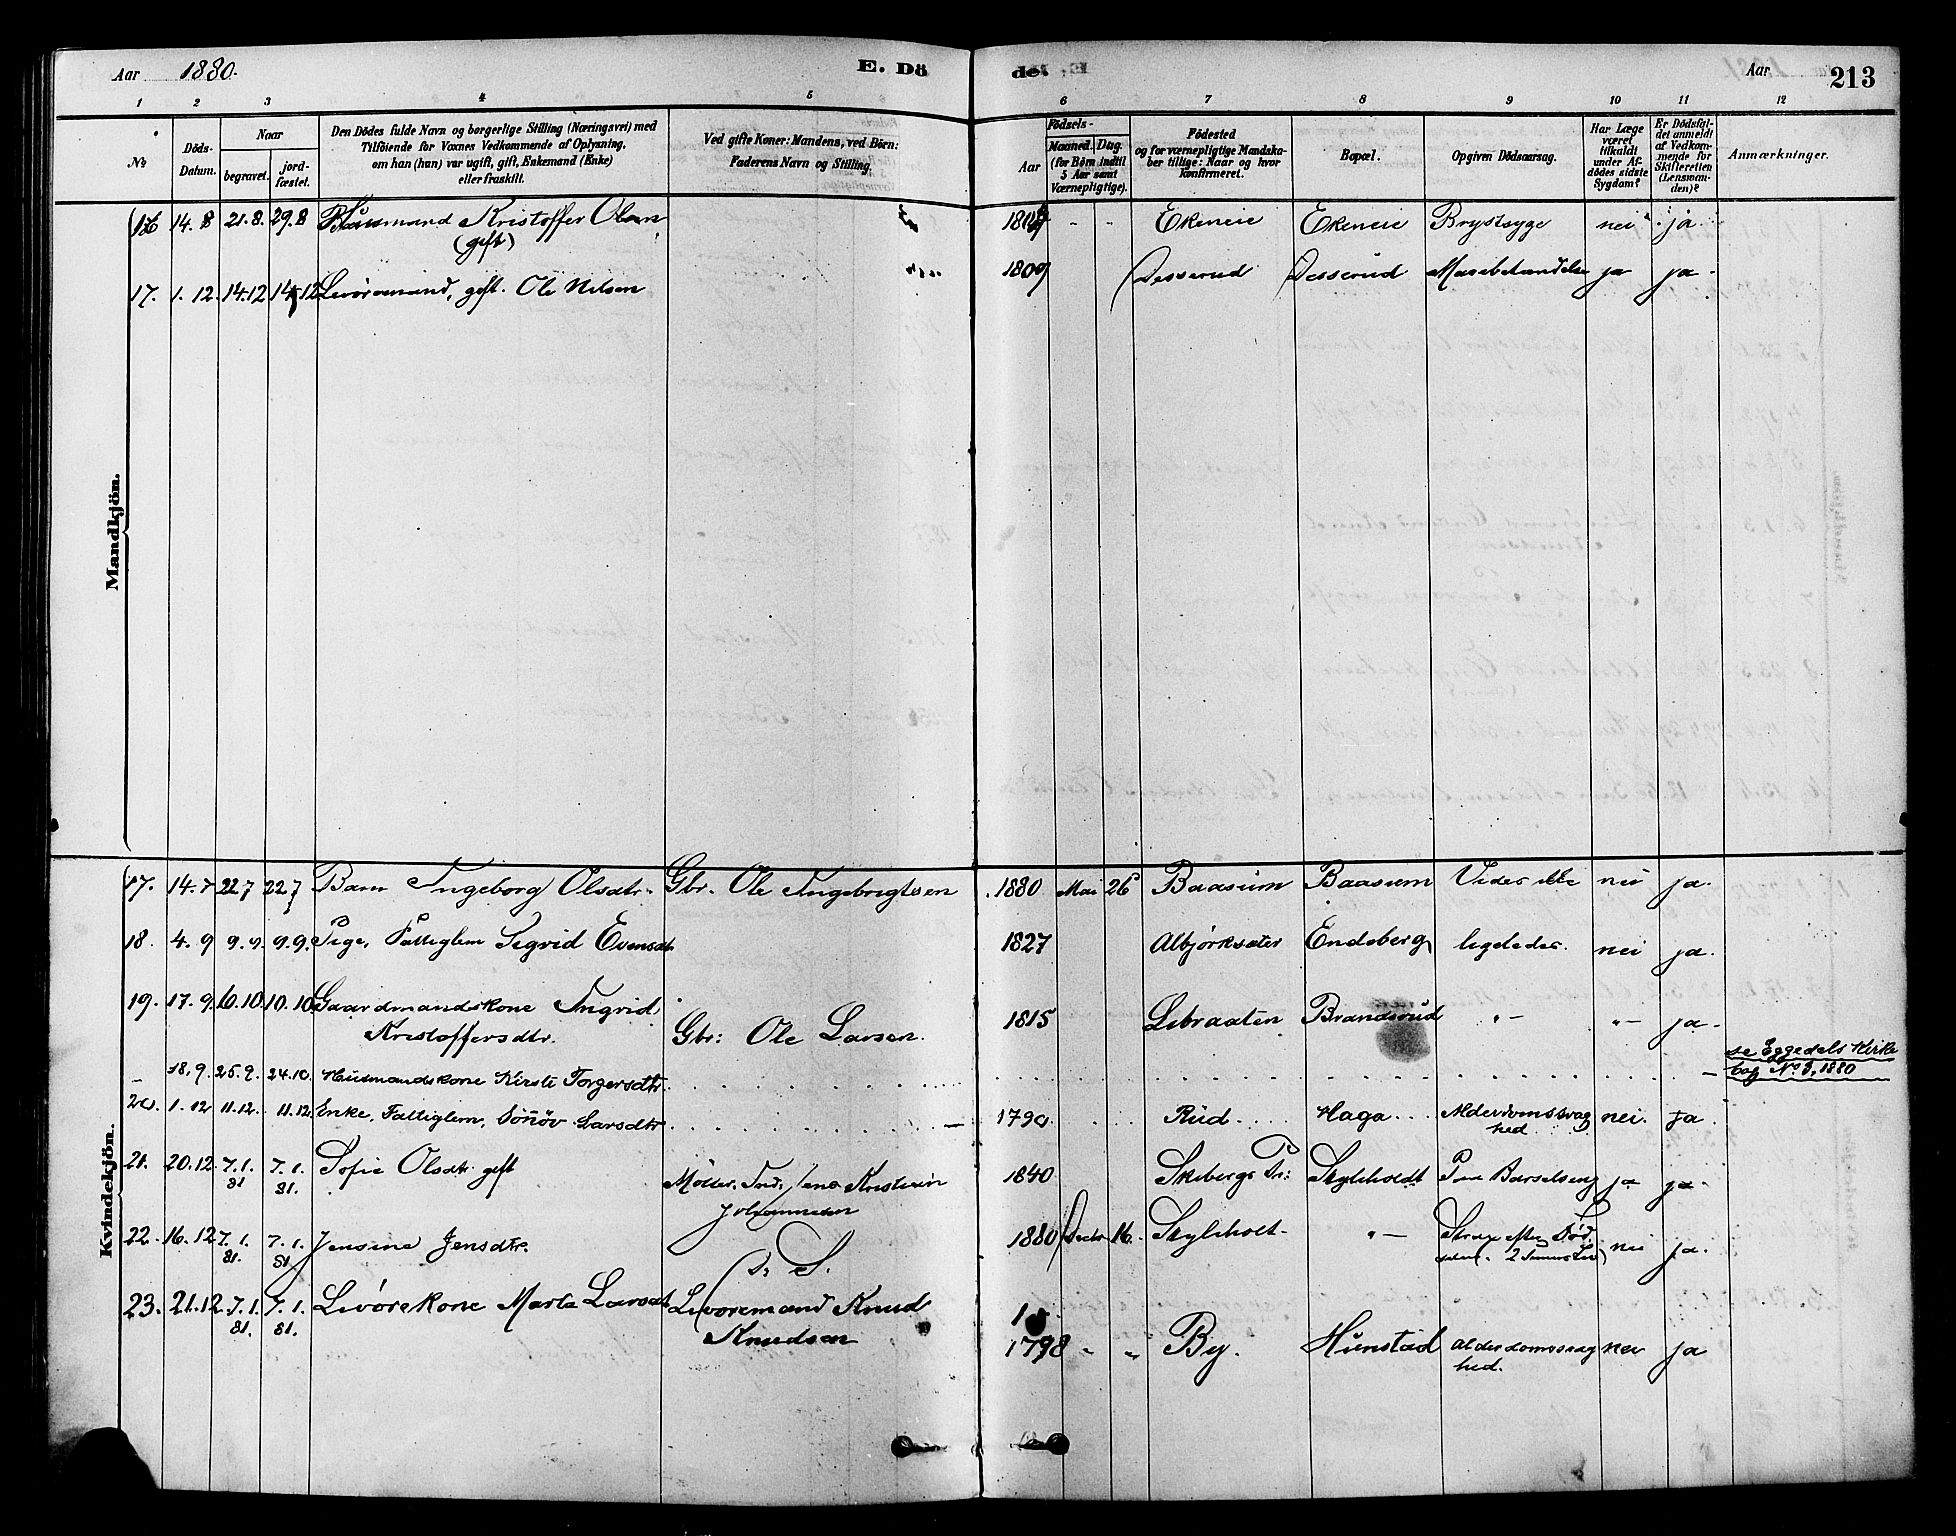 Aar 1880. E. Dö
de. Aar 213
1 2 3 4 5 6 7 8 9 10 11 12
No
Döds-Datum.
Naar
begravet.
jord-fæstet.
Den Dödes fulde Navn og borgerlige Stilling (Næringsvei) med
Tilföiende for Voxnes Vedkommende af Oplysning,
om han (hun) var ugift, gift, Enkemand (Enke)
eller fraskilt.
Ved gifte Koner: Mandens, ved Börn:
Faderens Navn og Stilling.
Födsels-
Aar
Maaned. Dag.
(for Börn indtil
5 Aar samt
Værnepligtige).
Födested
og for værnepligtige Mandska-
ber tillige: Naar og hvor
konfirmeret.
Bopæl.
Opgiven Dödsaarsag.
Har Læge
været
tilkaldt
under Af-
dödes sidste
Sygdom?
Er Dödsfal-
det anmeldt
af Vedkom-
mende for
Skifteretten
(Lensman-
den)?
Anmærkninger.
Mandkjön.
16 14. 8 21. 8. 29. 8 Husmand Kristoffer Olsen - - Ekeneie Ekeneie Brystsyge nei ja
(gift)
17. 1. 12. 14. 12 14. 12 Livöremand, gift. Ole Nilsen 1809 Desserud Desserud ja ja.
Kvindekjön.
17. 14. 7 22. 7 22. 7 Barn Ingeborg Olsdtr. Gbr. Ole Ingebrigtsen 1880 Mai 26 Baasum Baasum Vides ikke nei ja.
18. 4. 9 9. 9. 9. 9. Pige, Fattiglem Sigrid Evensdtr 1827 Albjørksæter Endeberg ligeledes. nei ja.
19. 17. 9. 10. 10. 10. 10. Gaardmandskone Ingrid
Kristoffersdtr. Gbr: Ole Larsen. 1815 Lebraaten Brandsrud "- "- ja.
- 18. 9. 25. 9. 24. 10. Husmandskone Kirsti Torgersdtr. se Eggedals Kirke
bog No 8, 1880
20. 1. 12 11. 12. 11. 12. Enke, Fattiglem, Sönöv Larsdtr. 1790. Rud Haga Alderdomssvag
hed nei. Ja.
21. 20. 12. 7. 1. 81 7. 1. 81. Sofie Olsdtr. gift Möller, Ind. Jens Kristian
Johannesen 1840 Skibergs Pr: Stykholdt ja ja.
22. 16. 12 7. 1. 81. 7. 1. 81 Jensine Jensdtr. Ds S. 1880 Decbr 16. "- Strax efter Föd
selen. nei ja.
23. 21. 12. 7. 1. 81. 7. 1. 81. Livörekone Marta Larsdtr Livöremand Knud
Knudsen 1798 " " By. Hunstad Alderdomssvag
hed. nei ja